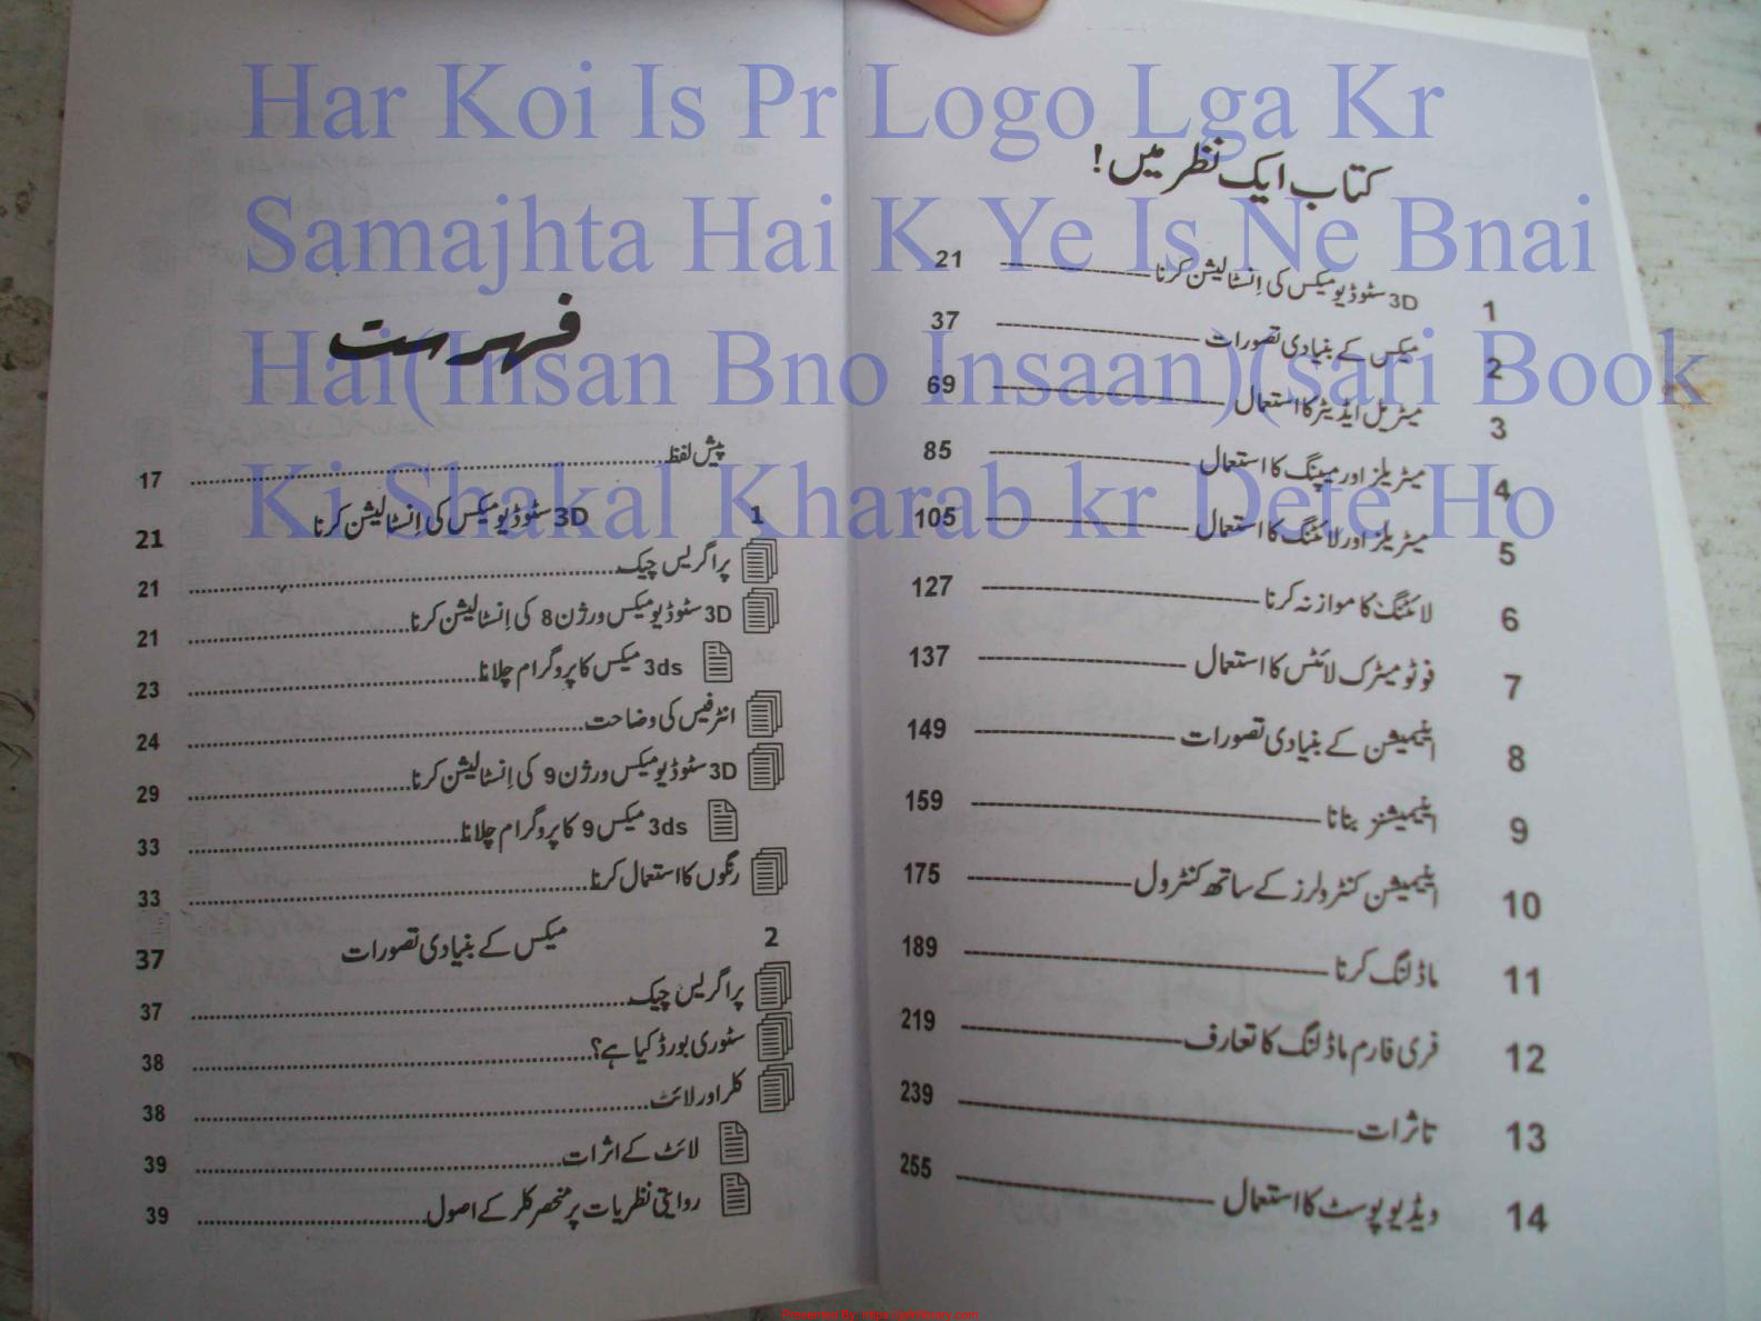 Har Koi Is Pr Logo Lga Kr
Samajhta Hai K Ye Is Ne Bnai
Hai(Insan Bno Insaan)(sari Book
Ki Shakal Kharab kr Dete Ho
کتاب ایک نظر میں!
1 3D سٹوڈیو میکس کی اِنسٹالیشن کرنا 21
2 میکس کے بنیادی تصورات 37
3 میٹریل ایڈیٹر کا استعمال 69
4 میٹریلز اور میپنگ کا استعمال 85
5 میٹریلز اور لائٹنگ کا استعمال 105
6 لائٹنگ کا موازنہ کرنا 127
7 فوٹو میٹرک لائٹس کا استعمال 137
8 اینیمیشن کے بنیادی تصورات 149
9 اینیمیشنز بنانا 159
10 اینیمیشن کنٹرولرز کے ساتھ کنٹرول 175
11 ماڈلنگ کرنا 189
12 فری فارم ماڈلنگ کا تعارف 219
13 تاثرات 239
14 ویڈیو پوسٹ کا استعمال 255
فہرست
پیش لفظ 17
1 3D سٹوڈیو میکس کی اِنسٹالیشن کرنا 21
پراگریس چیک 21
3D سٹوڈیو میکس ورژن 8 کی اِنسٹالیشن کرنا 21
3ds میکس کا پروگرام چلانا 23
انٹرفیس کی وضاحت 24
3D سٹوڈیو میکس ورژن 9 کی اِنسٹالیشن کرنا 29
3ds میکس 9 کا پروگرام چلانا 33
رنگوں کا استعمال کرنا 33
2 میکس کے بنیادی تصورات 37
پراگریس چیک 37
سٹوری بورڈ کیا ہے؟ 38
کلر اور لائٹ 38
لائٹ کے اثرات 39
روایتی نظریات پر منحصر کلر کے اصول 39